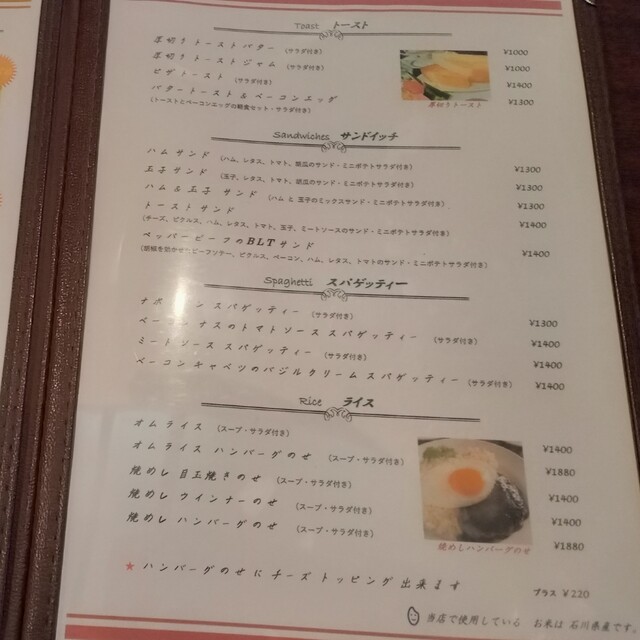 Toast トースト
厚切りトーストバター (サラダ付き) ¥1000
厚切りトーストジャム (サラダ付き) ¥1000
ピザトースト (サラダ付き) ¥1400
バタートースト＆ベーコンエッグ ¥1300
(トーストとベーコンエッグの軽食セット・サラダ付き)
厚切りトースト
Sandwiches サンドイッチ
ハムサンド (ハム、レタス、トマト、胡瓜のサンド・ミニポテトサラダ付き) ¥1300
玉子サンド (玉子、レタス、トマト、胡瓜のサンド・ミニポテトサラダ付き) ¥1300
ハム＆玉子 サンド (ハム と 玉子のミックスサンド・ミニポテトサラダ付き) ¥1300
トーストサンド ¥1400
(チーズ、ピクルス、ハム、レタス、トマト、玉子、ミートソースのサンド・ミニポテトサラダ付き)
ペッパービーフのBLTサンド ¥1400
(胡椒を効かせたビーフソテー、ピクルス、ベーコン、ハム、レタス、トマトのサンド・ミニポテトサラダ付き)
Spaghetti スパゲッティー
ナポ ン スパゲッティー (サラダ付き) ¥1300
ベーコン ナスのトマトソース スパゲッティー (サラダ付き) ¥1400
ミートソース スパゲッティー (サラダ付き) ¥1400
ベーコンキャベツのバジルクリーム スパゲッティー (サラダ付き) ¥1400
Rice ライス
オムライス (スープ・サラダ付き) ¥1400
オムライス ハンバーグのせ (スープ・サラダ付き) ¥1880
焼めし 目玉焼きのせ (スープ・サラダ付き) ¥1400
焼めし ウインナーのせ (スープ・サラダ付き) ¥1400
焼めし ハンバーグのせ (スープ・サラダ付き) ¥1880
焼めしハンバーグのせ
★ ハンバーグのせにチーズトッピング出来ます プラス ¥220
当店で使用している お米は 石川県産です。